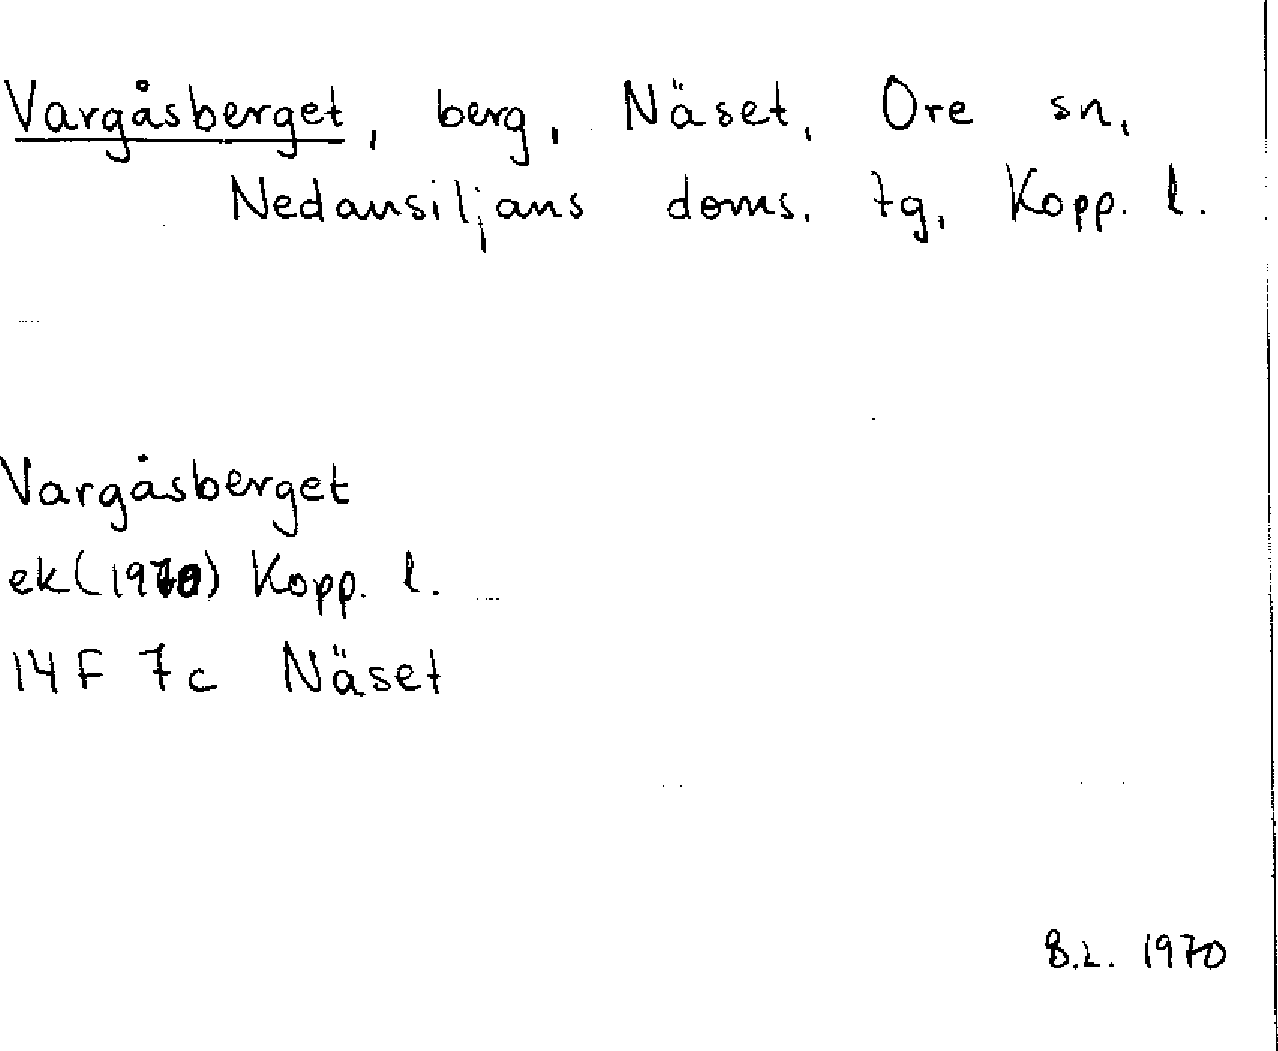 Vargåsberget, berg, Näset, Ore sn,
Nedansiljans doms. tg, Kopp. l.
Vargåsberget
ek (1970) Kopp. l.
14 F 7c Näset
B.L. 1970